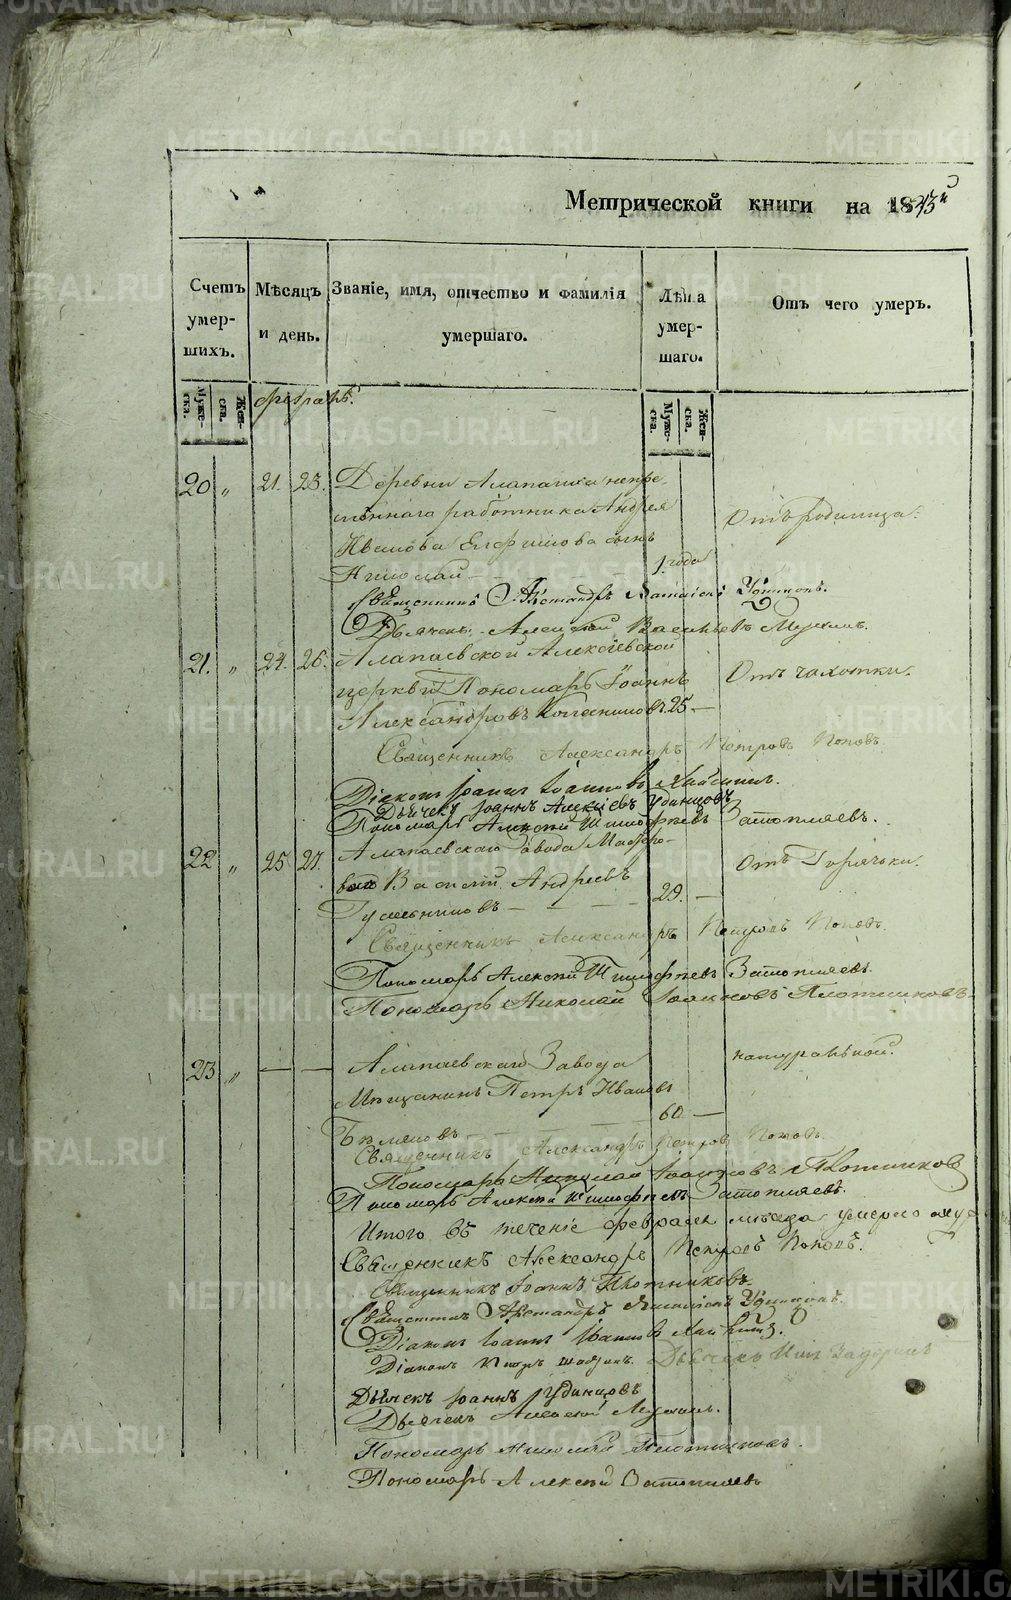 Метрической книги на 1843й
Счетъ умер-шихъ.
Мѣсяцъ и день.
Званіе, имя, отчество и фамилія умершаго.
Лѣта умер-шаго.
Отъ чего умеръ.
Муже-ска.
Жен-ска.
Муже-ска.
Жен-ска.
февраль.
20 „ 21. 23. Деревни Алапаихи непре-
мѣннаго работника Андрея Отъ родимца.
Иванова Елфимова сынъ
Николай 1 года
Священникъ Александръ Удинцовъ.
Дьячекъ Алексѣй Васильевъ
21. „ 24. 26. Алапаевской Алексѣевской
церкви Пономарь Іоаннъ Отъ чахотки.
Александровъ 25 —
Священникъ Александръ Петровъ Поповъ.
Діаконъ Іоаннъ Іоанновъ
Дьячекъ Іоаннъ Алексѣевъ Удинцовъ
Пономарь Алексѣй Тимофѣевъ Затопляевъ.
22 „ 25. 27. Алапаевскаго Завода Мастеро-
вой Василій Андреевъ Отъ Горячки.
Гусельниковъ — 29. —
Священникъ Александръ Петровъ Поповъ.
Пономарь Алексѣй Тимофѣевъ Затопляевъ.
Пономарь Николай Іоанновъ Плотниковъ
23 „ — — Алапаевскаго Завода натуральной.
Мѣщанинъ Петръ Ивановъ
60 —
Священникъ Александръ Петровъ Поповъ.
Пономарь Николай Іоанновъ Плотниковъ
Пономарь Алексѣй Тимофѣевъ Затопляевъ.
Итого въ теченіе февраля мѣсяца умерло
Священникъ Александръ Петровъ Поповъ.
Священникъ Іоаннъ Плотниковъ
Священникъ Александръ Удинцовъ.
Діаконъ Іоаннъ Іоанновъ
Діаконъ Петръ Дьячекъ
Дьячекъ Іоаннъ Удинцовъ
Дьячекъ Алексѣй
Пономарь Николай Плотниковъ.
Пономарь Алексѣй Затопляевъ
METRIKI.GASO-URAL.RU